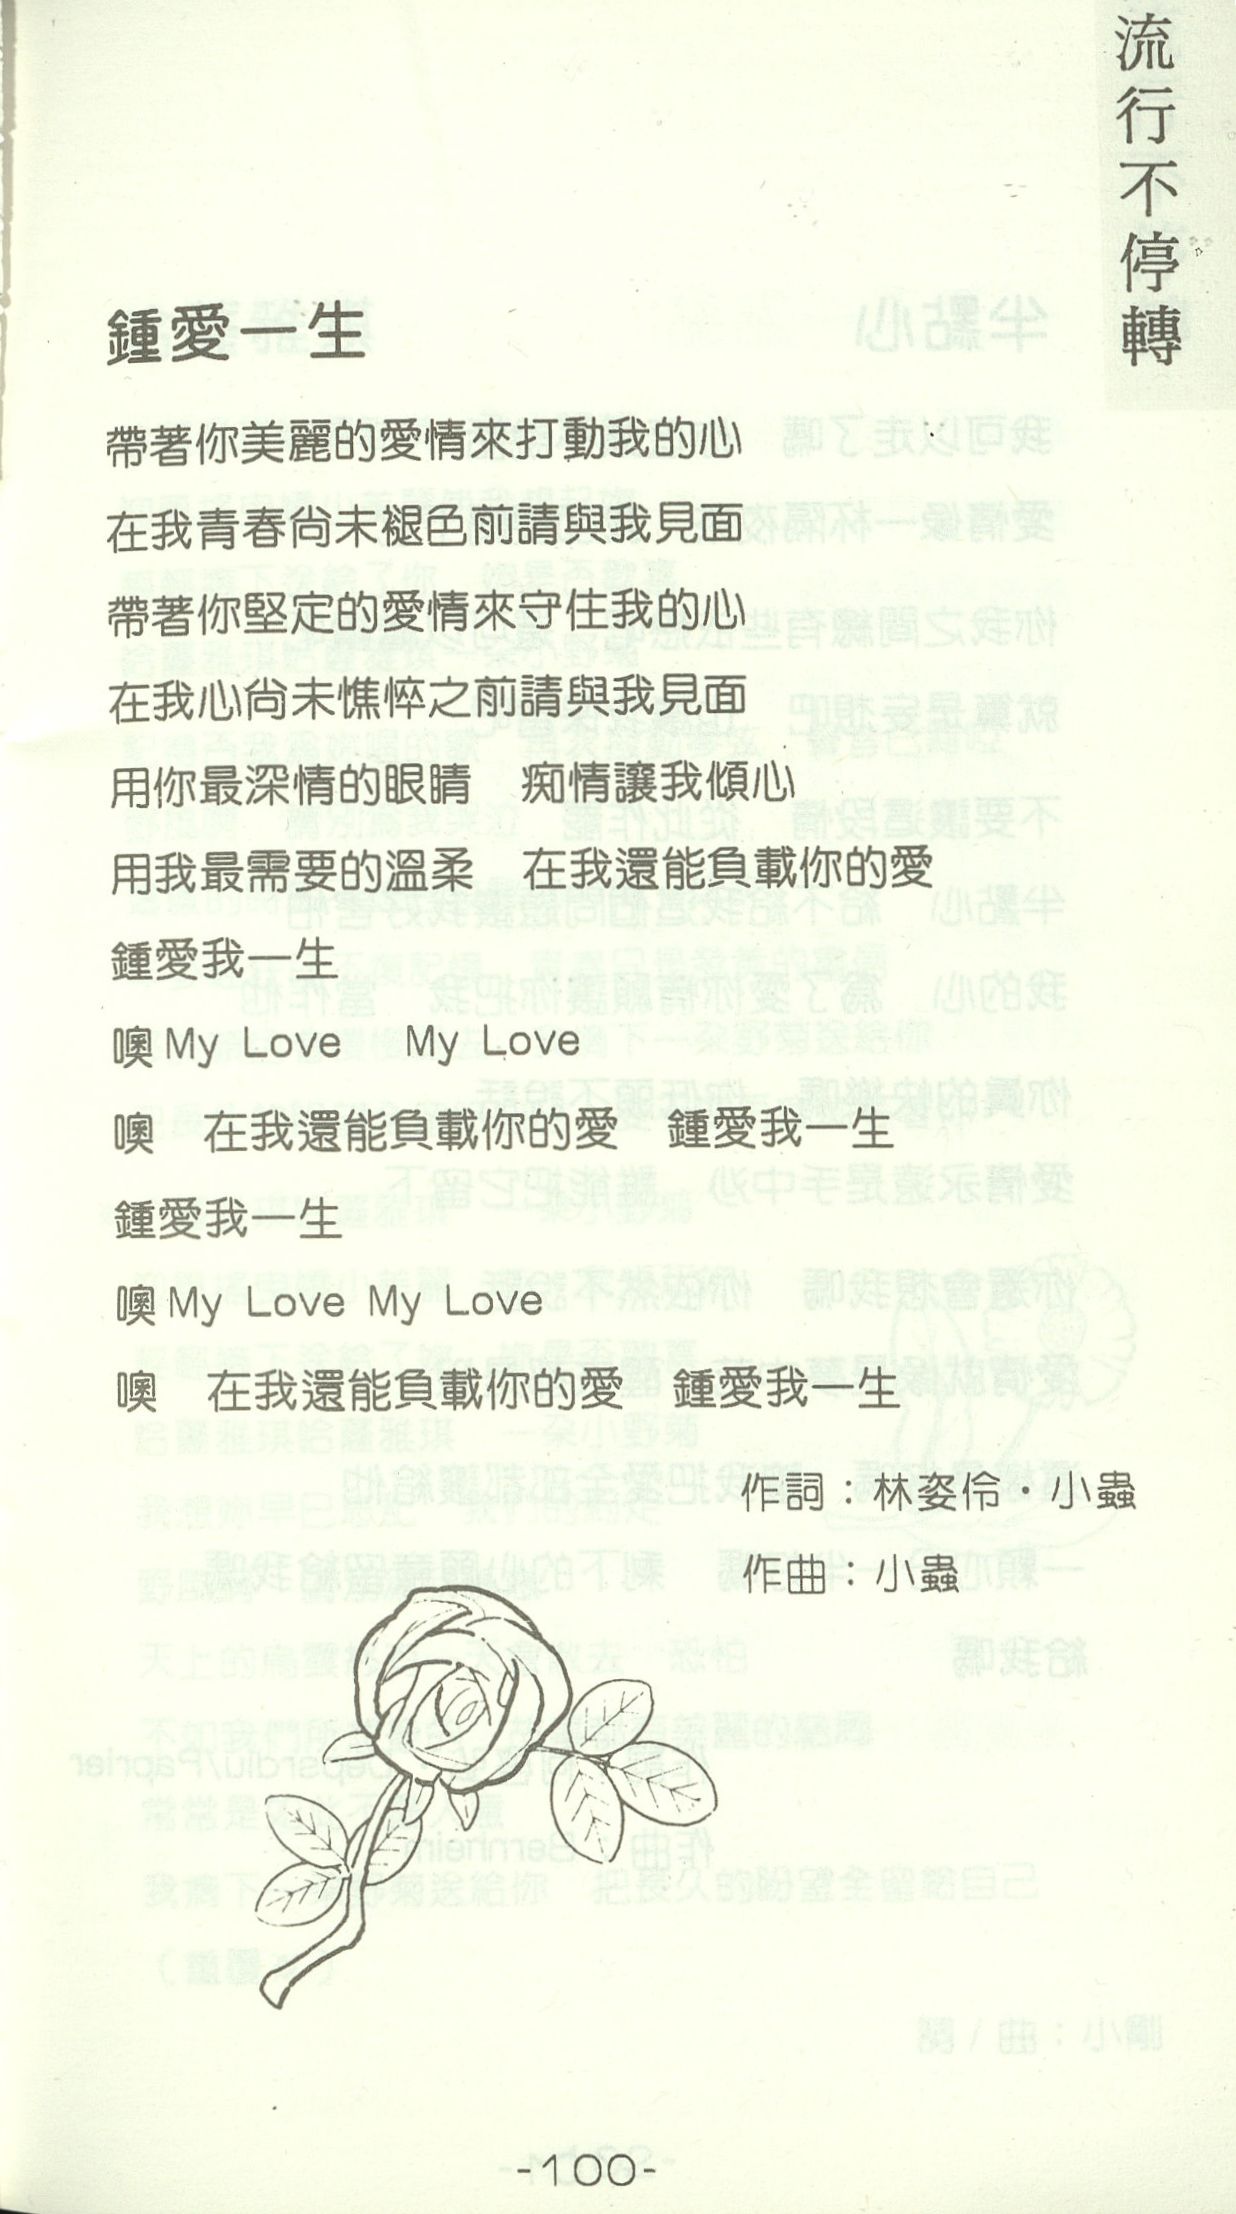 流行不停轉
鍾愛一生
帶著你美麗的愛情來打動我的心
在我青春尚未褪色前請與我見面
帶著你堅定的愛情來守住我的心
在我心尚未憔悴之前請與我見面
用你最深情的眼睛　痴情讓我傾心
用我最需要的溫柔　在我還能負載你的愛
鍾愛我一生
噢My Love　My Love
噢　在我還能負載你的愛　鍾愛我一生
鍾愛我一生
噢My Love My Love
噢　在我還能負載你的愛　鍾愛我一生
作詞：林姿伶・小蟲
作曲：小蟲
-100-